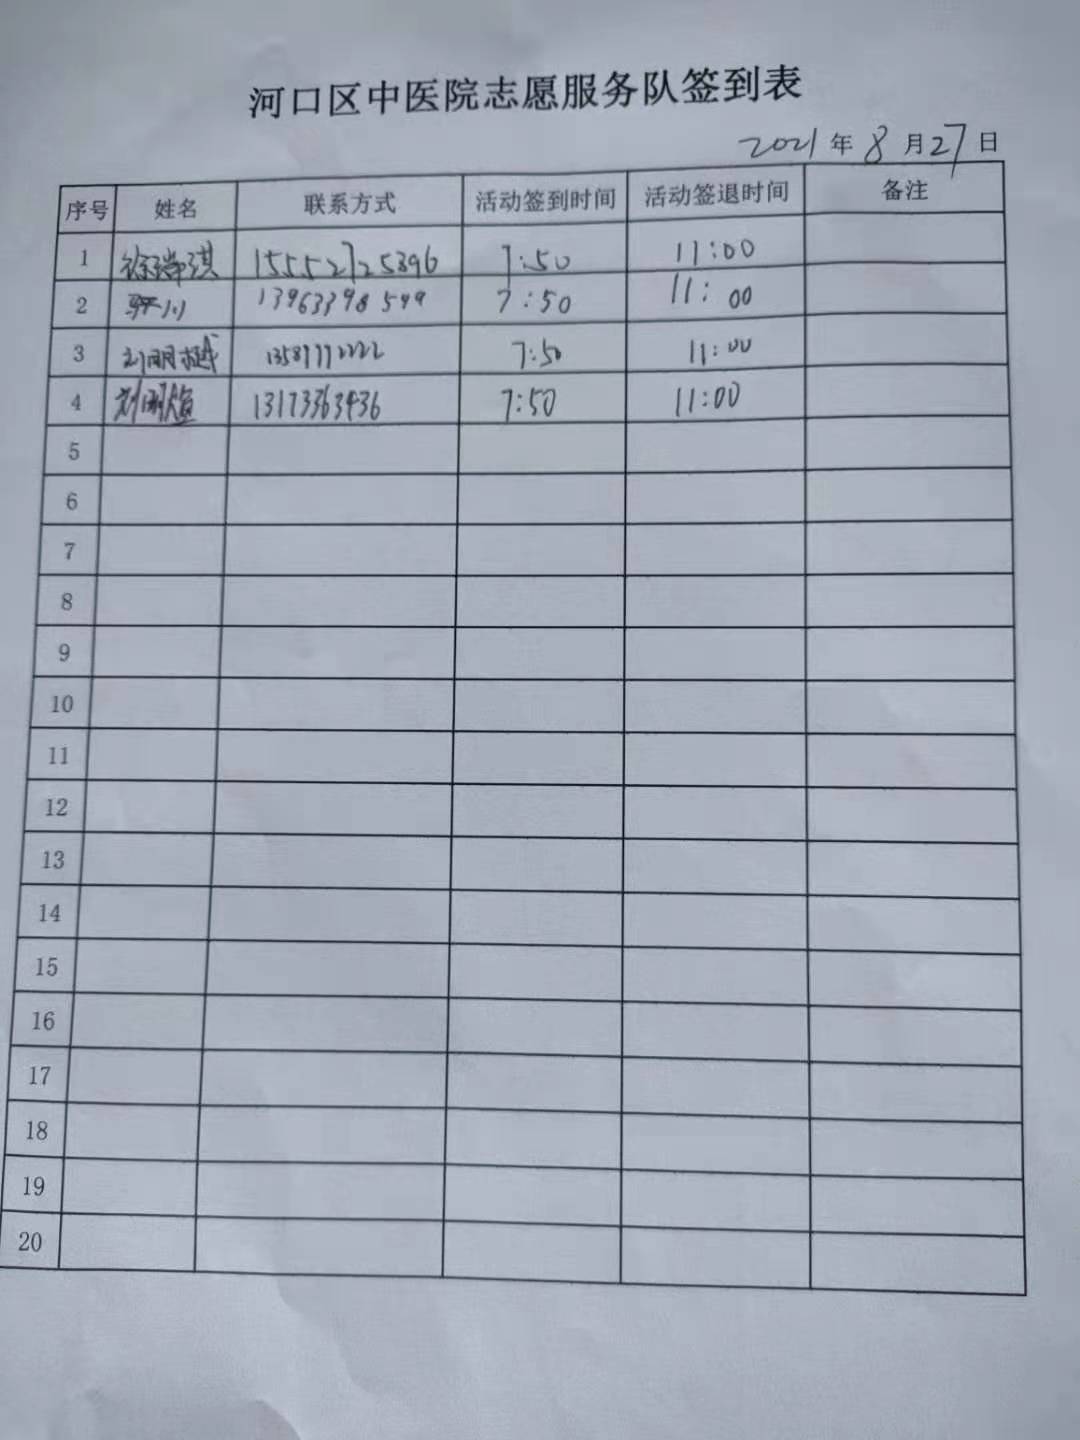 河口区中医院志愿服务队签到表
2021年8月27日
序号 姓名 联系方式 活动签到时间 活动签退时间 备注
1 徐瑞琪 15552725896 7:50 11:00
2 13963398599 7:50 11:00
3 刘明越 7:50 11:00
4 13173363436 7:50 11:00
5
6
7
8
9
10
11
12
13
14
15
16
17
18
19
20